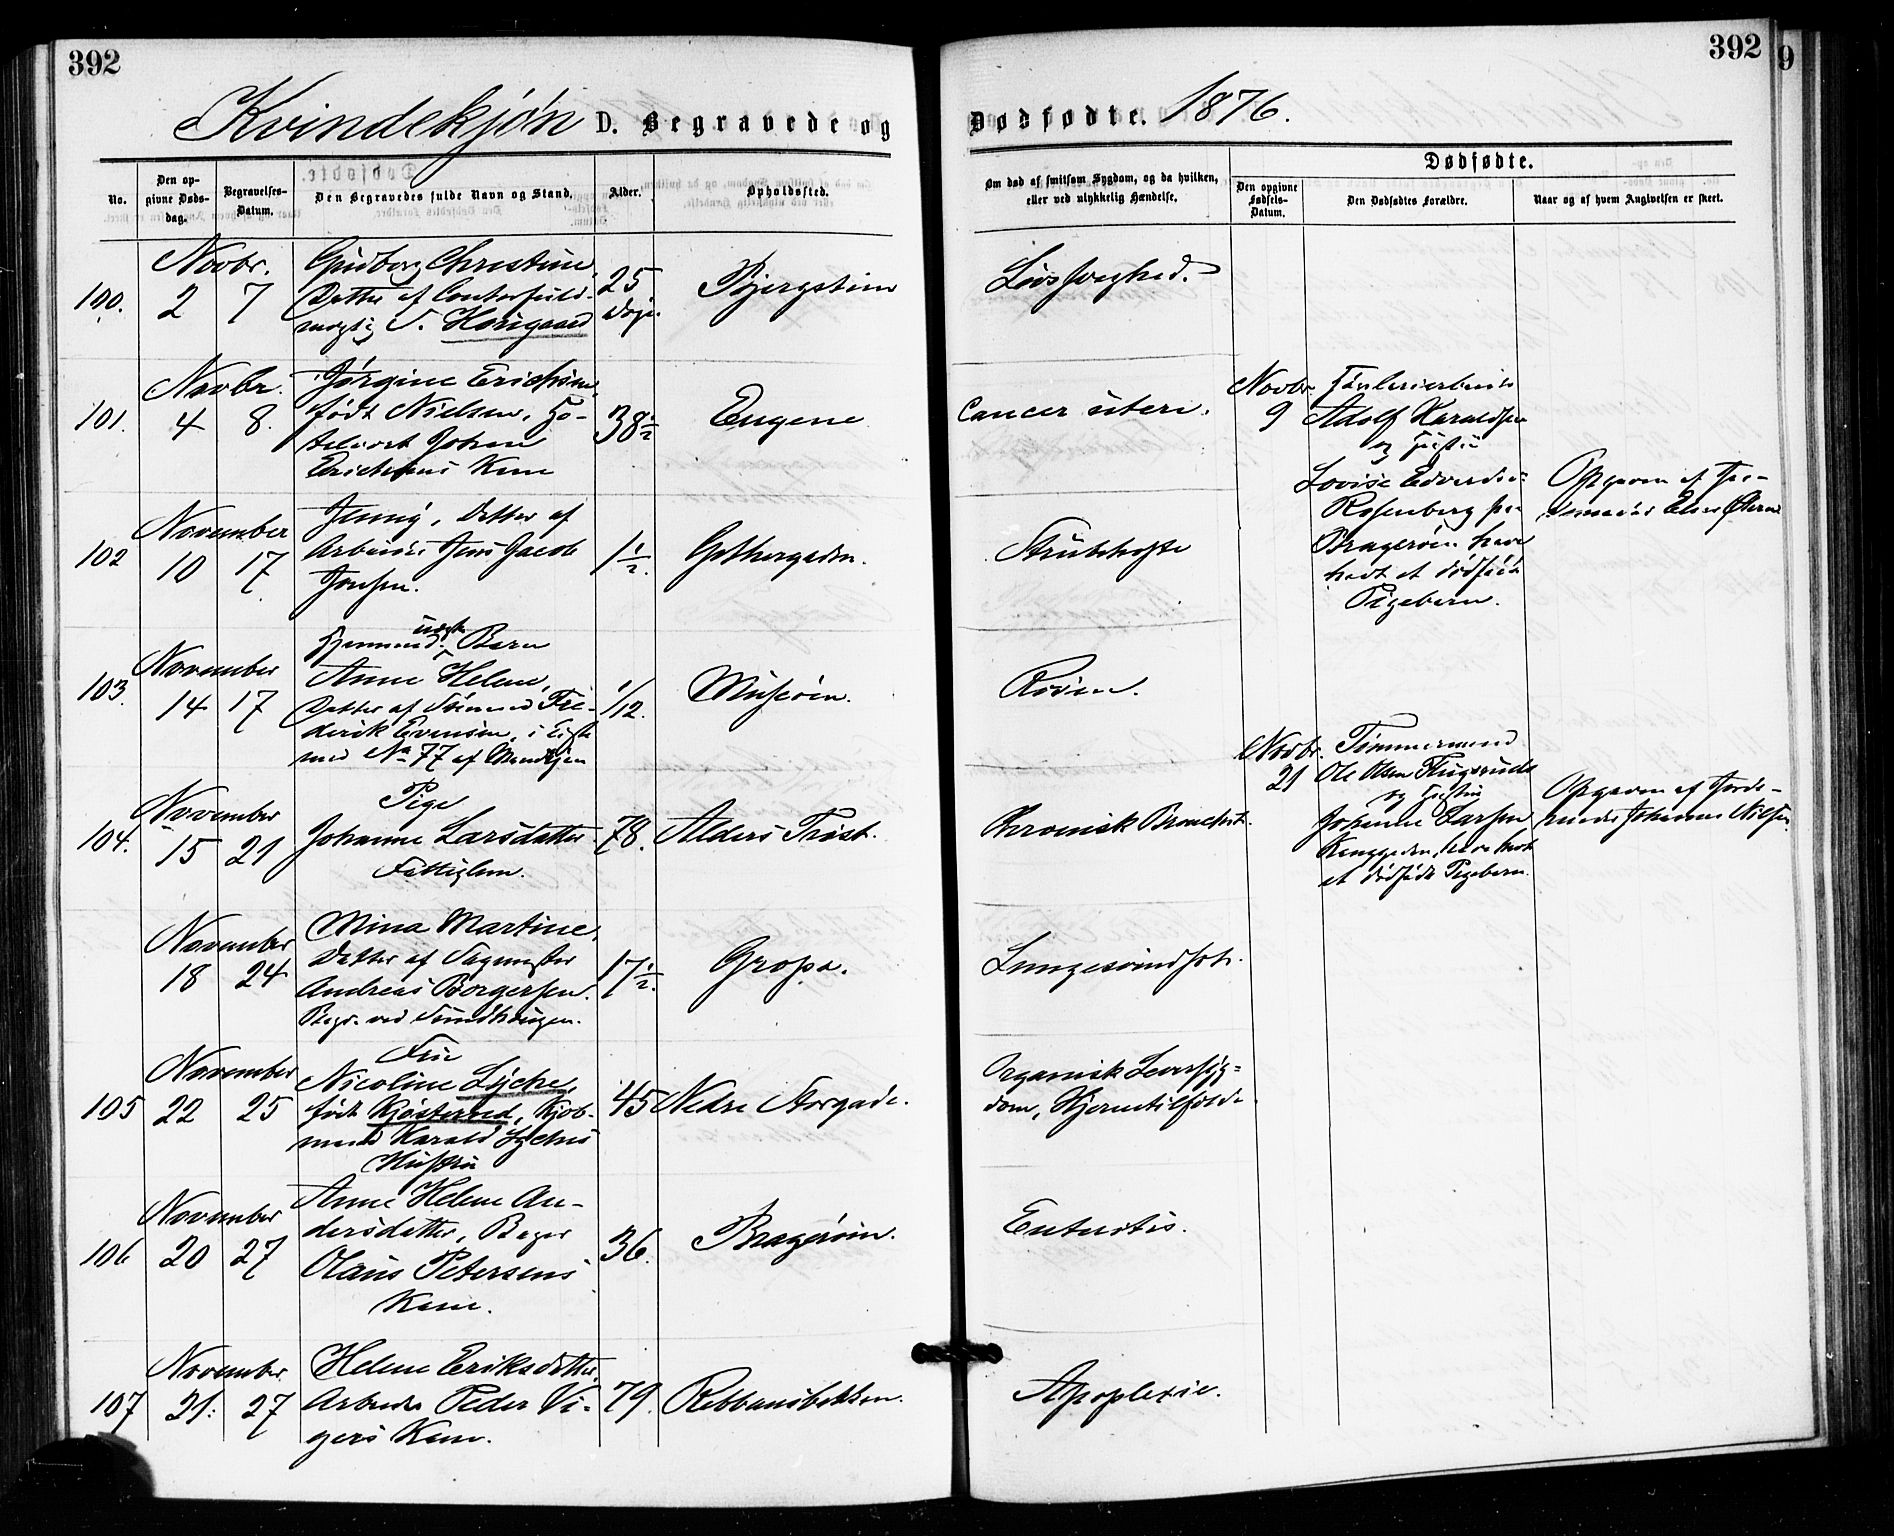 392
Kvindekjøn D. Begravede og
No.
Den opgivne Dødsdag.
Begravelses-Datum.
Den Begravedes fulde Navn og Stand.
Alder.
Opholdssted.
100.
Novbr.
2 7
Gudborg Christine,
Datter af Contorfuld-
mægtig S. Horsgaard
25
Dage.
101.
Novbr.
4 8.
Jørgine Erichsen,
født Nielsen, Ho-
telvert Johan
Erichsens Kone
38½
Eugene
102
November
10 17
Jenny, Datter af
Arbeider Jens Jacob
Jensen.
1½.
Gethergaden.
103.
November
14 17
Hjemmed. Barn
Anne Helene,
Datter af Sømand Fre-
derik Evensen, i Kiste
med No 77 af Mandkjøn
1/12.
Musøen.
104.
November
15 21
Pige
Johanne Larsdatter
Fattiglem.
78.
Alders Trøst.
November
18 24
Mina Martine,
Datter af Sagmester
Andreas Borgersen.
Begr. ved Sundhaugen.
17½.
Gropa.
105
November
22 25
Fru
Nicoline Lyche,
født Kjøsterud, Kjøb-
mand Harald Lyches
Hustru
45
Nedre Storgade.
106
November
20 27
Anne Helene An-
dersdatter, Bager
Olaus Petersens
Kone.
36.
Bragerøen.
107
November
21. 27
Helene Eriksdatter,
Arbeider Peder Vi-
gers Kone.
79.
Rebbansbakken.
392
9
Dødfødte. 1876.
Om død af smitsom Sygdom, og da hvilken,
eller ved ulykkelig Hændelse.
Dødfødte.
Den opgivne Fødsels-Datum.
Den Dødfødtes Forældre.
Naar og af hvem Angivelsen er skeet.
Livssvaghed.
Cancer uteri.
Novbr.
9
Adolf Haraldsen
og Hustru
Lovise
Rosenberg paa
Bragerøen have
havt et dødfødt
Pigebarn.
Opgaven af Jor-
demoder
Strubehoste
Novbr.
21
Tømmermand
Ole Olsen
og Hustru
Johanne Larsen
have havt
et dødfødt Pigebarn.
Opgaven af Jorde-
moder Johanne Nilsen.
Chronisk Bronchit.
Lungesvindsot.
Organisk Leversyg-
dom, Hjernetilfælde.
Enteritis.
Apoplexie.